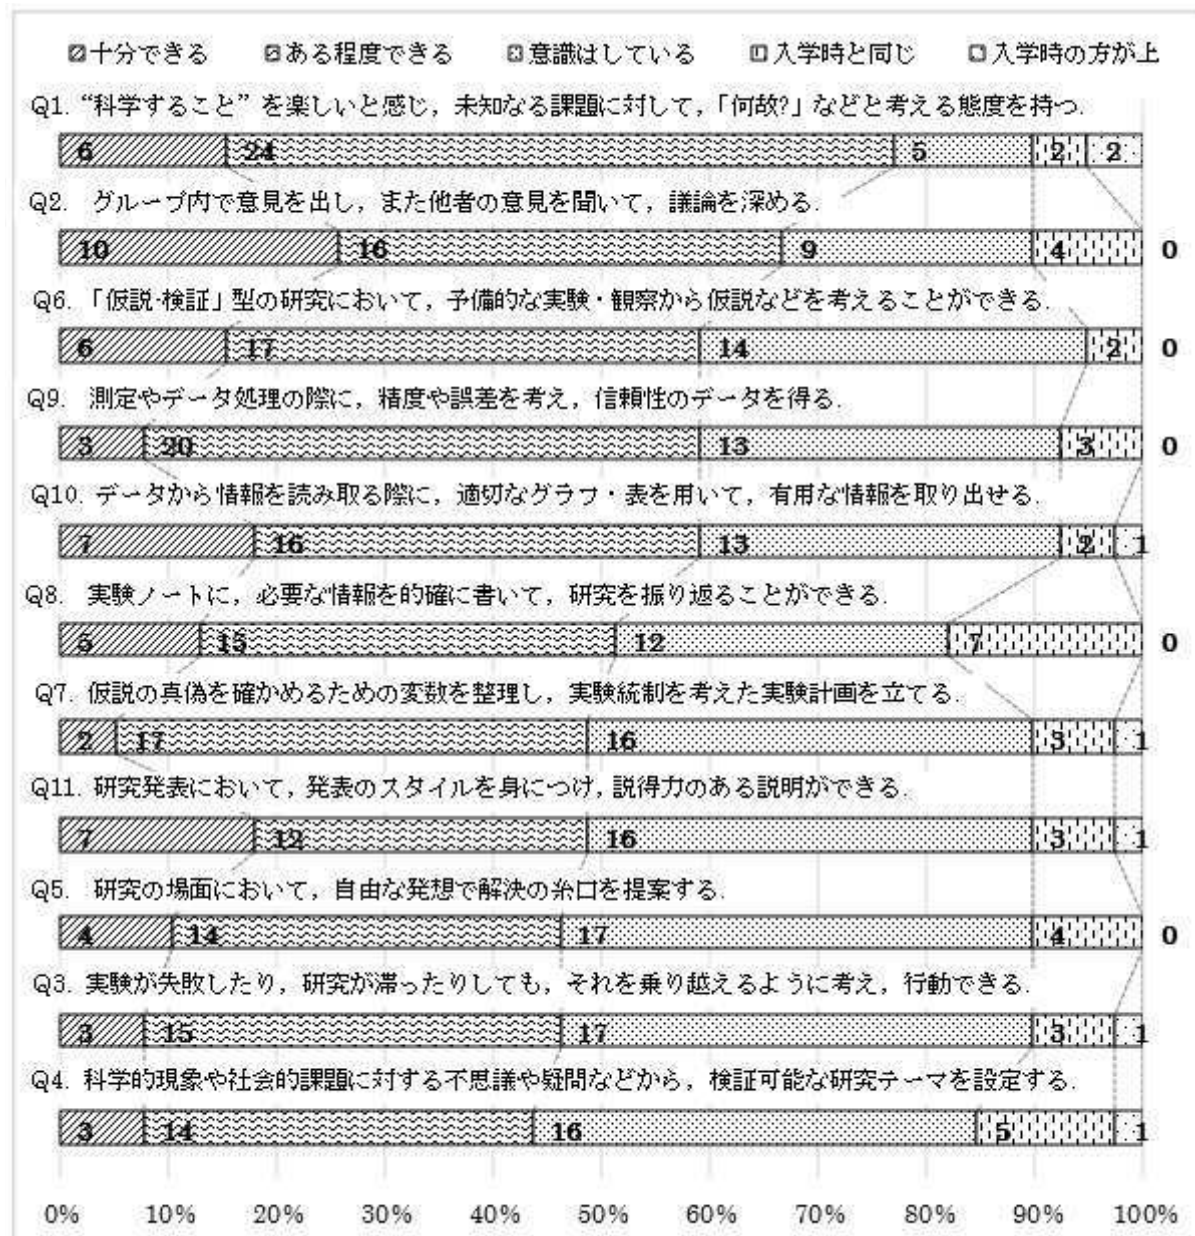 十分できる ある程度できる 意識はしている 入学時と同じ 入学時の方が上
Q1. “科学すること”を楽しいと感じ，未知なる課題に対して，「何故?」などと考える態度を持つ.
6 24 5 2 2
Q2. グループ内で意見を出し，また他者の意見を聞いて，議論を深める.
10 16 9 4 0
Q6. 「仮説-検証」型の研究において，予備的な実験・観察から仮説などを考えることができる.
6 17 14 2 0
Q9. 測定やデータ処理の際に，精度や誤差を考え，信頼性のデータを得る.
3 20 13 3 0
Q10. データから情報を読み取る際に，適切なグラフ・表を用いて，有用な情報を取り出せる.
7 16 13 2 1
Q8. 実験ノートに，必要な情報を的確に書いて，研究を振り返ることができる.
5 15 12 7 0
Q7. 仮説の真偽を確かめるための変数を整理し，実験統制を考えた実験計画を立てる.
2 17 16 3 1
Q11. 研究発表において，発表のスタイルを身につけ，説得力のある説明ができる.
7 12 16 3 1
Q5. 研究の場面において，自由な発想で解決の糸口を提案する.
4 14 17 4 0
Q3. 実験が失敗したり，研究が滞ったりしても，それを乗り越えるように考え，行動できる.
3 15 17 3 1
Q4. 科学的現象や社会的課題に対する不思議や疑問などから，検証可能な研究テーマを設定する.
3 14 16 5 1
0% 10% 20% 30% 40% 50% 60% 70% 80% 90% 100%